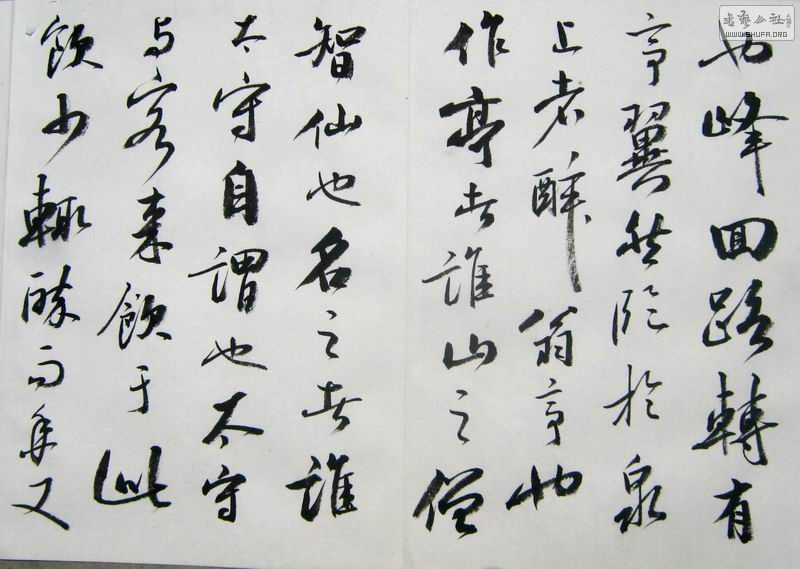 也峰回路轉有
亭翼然臨於泉
上者醉翁亭也
作亭者誰山之僧
智仙也名之者誰
太守自謂也太守
与客来飲于此
飲少輒醉而年又
書藝公社
WWW.SHUFA.ORG